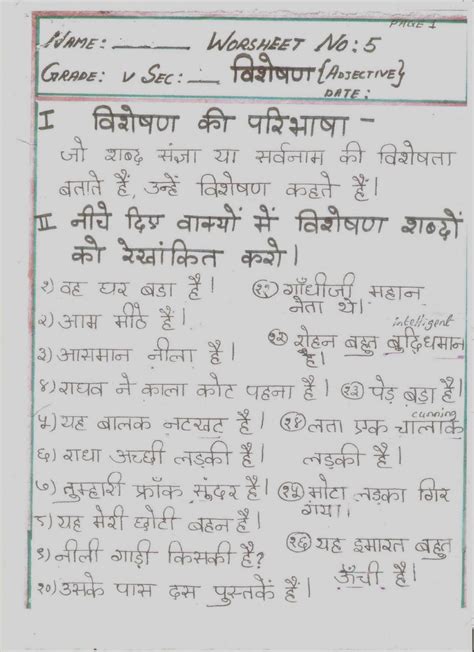 PAGE 1
NAME: ______ WORSHEET NO: 5
GRADE: V SEC: __ विशेषण {ADJECTIVE}
DATE:
I विशेषण की परिभाषा -
जो शब्द संज्ञा या सर्वनाम की विशेषता
बताते हैं, उन्हें विशेषण कहते हैं।
II नीचे दिए वाक्यों में विशेषण शब्दों
को रेखांकित करो।
१) वह घर बडा है।
२) आम मीठे है।
३) आसमान नीला है।
४) राघव ने काला कोट पहना है।
५) यह बालक नटखट है।
६) राधा अच्छी लड़की है।
७) तुम्हारी फ्रॉक सुंदर है।
८) यह मेरी छोटी बहन है।
९) नीली गाड़ी किसकी है?
१०) उसके पास दस पुस्तकें है।
११) गाँधीजी महान
नेता थे।
intelligent
१२) रोहन बहुत बुद्धिधमान
है।
१३) पेड़ बडा है।
cunning
१४) लता एक चालाक
लड़की है।
१५) मोटा लड़का गिर
गया।
१६) यह इमारत बहुत
ऊँची है।